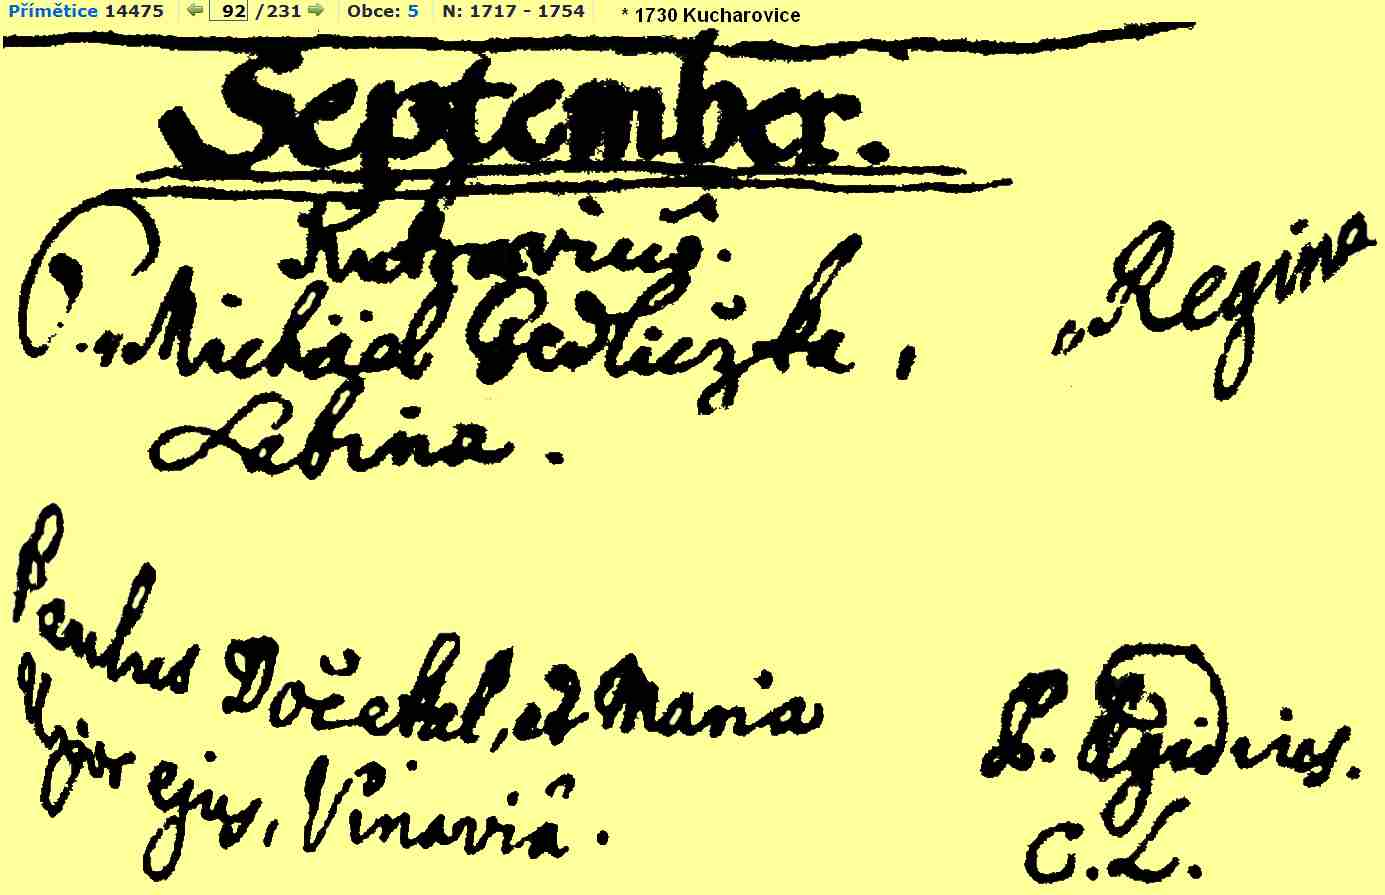 Přímětice 14475 92 /231 Obce: 5 N: 1717 - 1754 * 1730 Kucharovice
September.
P. Michäel Jedlička, Regina
Sabina.
Paulus Dočekal, et Maria
Uxor ejus, Vinaviâ.
S. Egidius.
C. L.